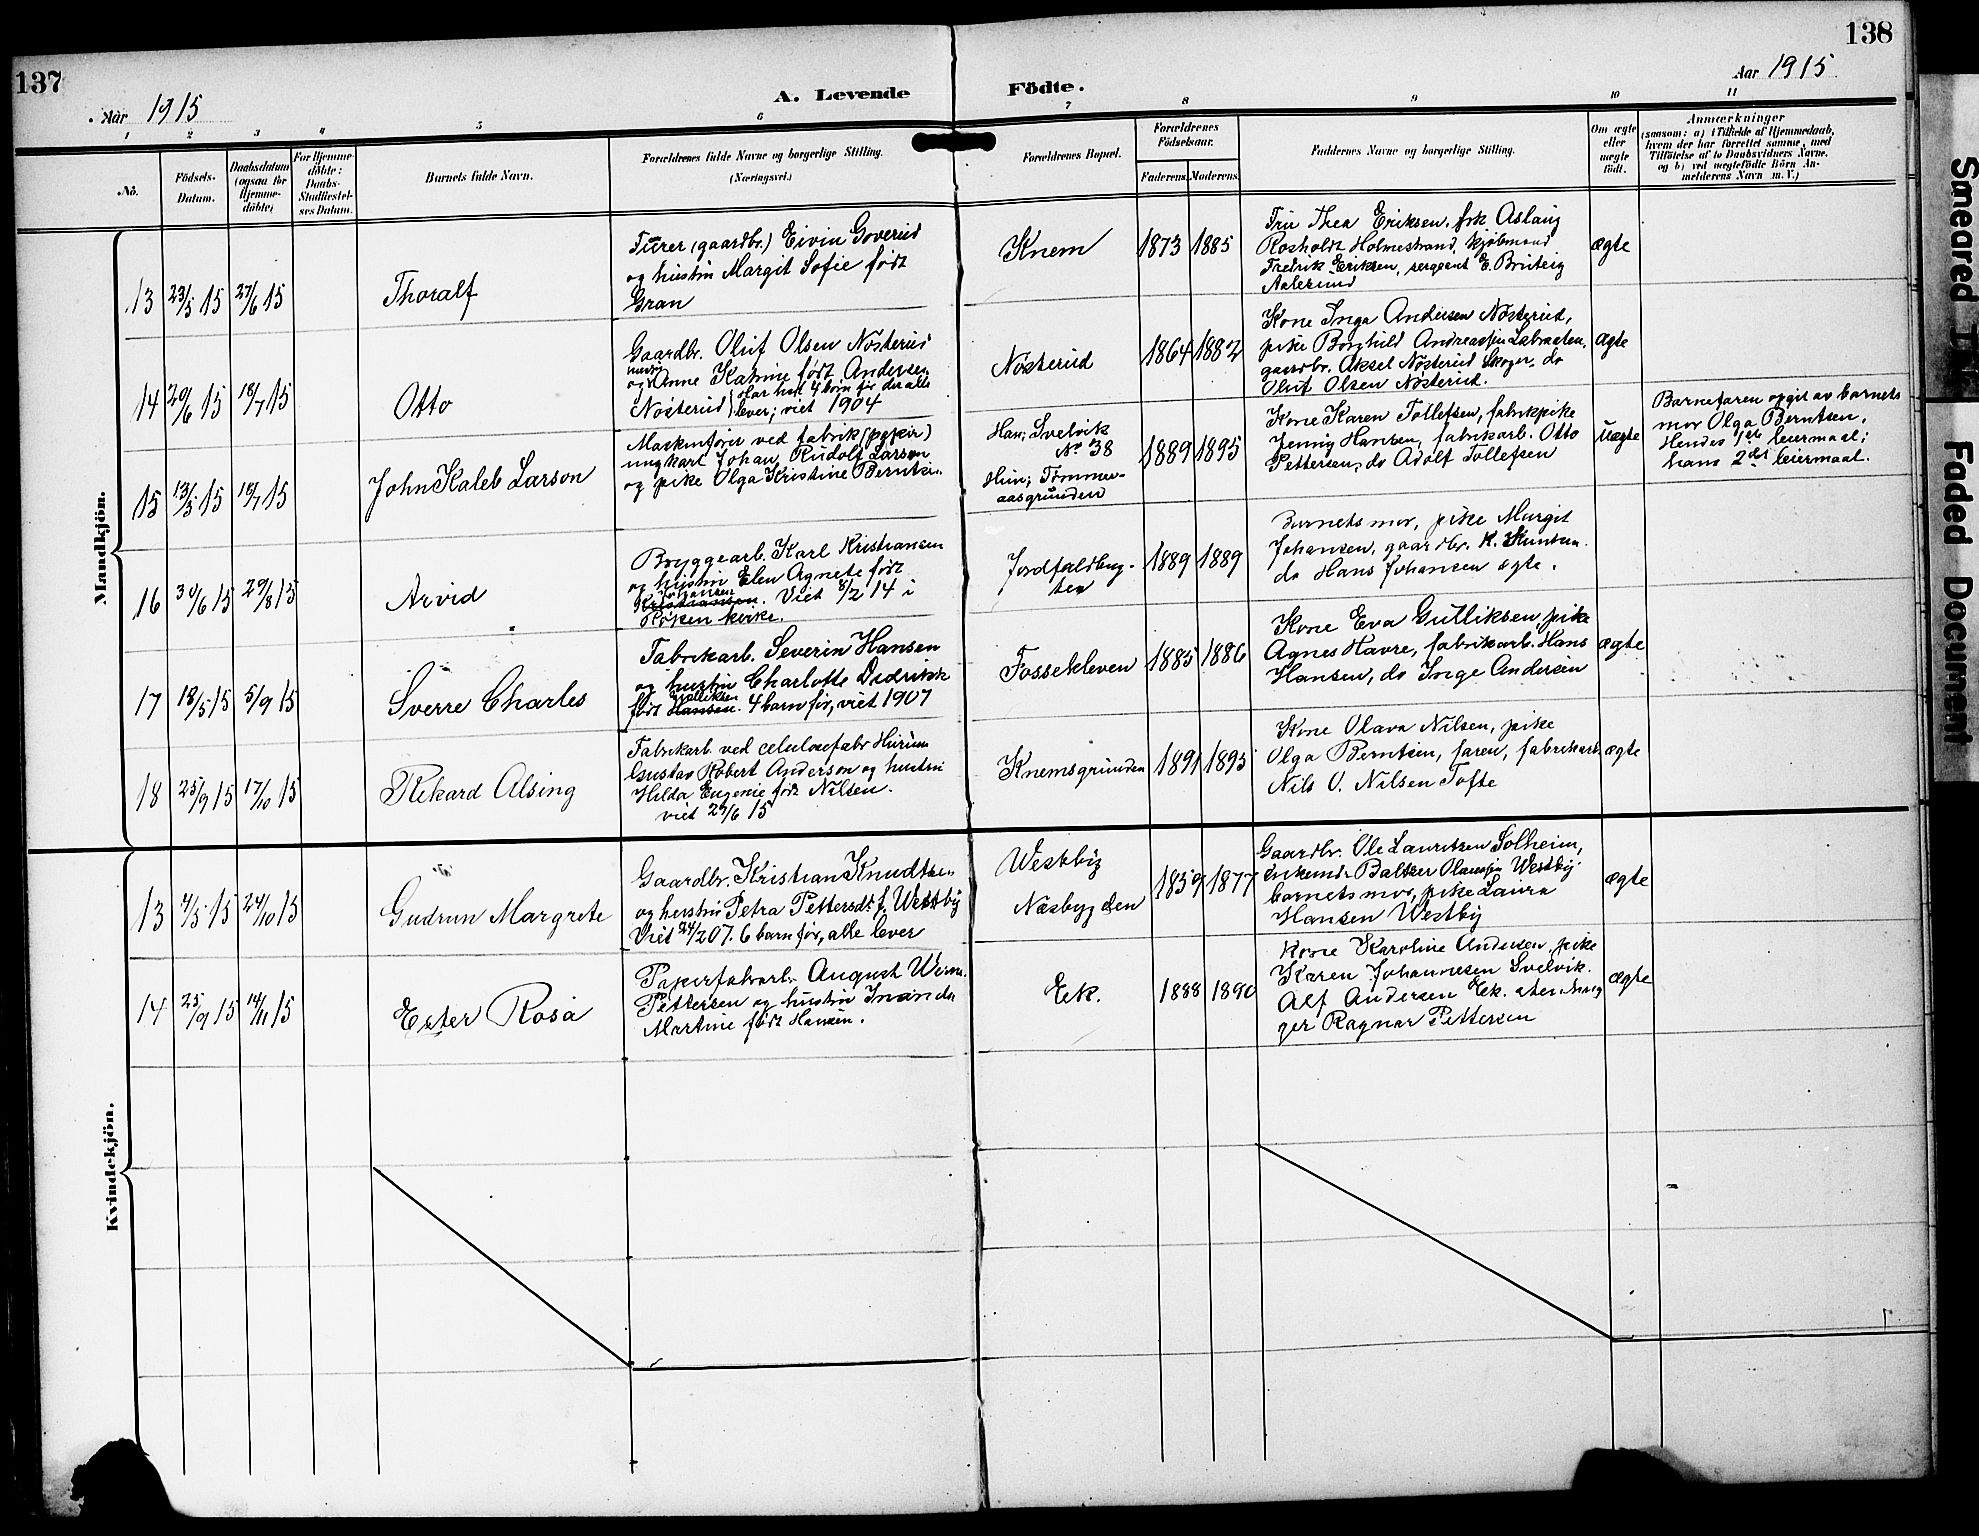 137
138
Aar 1915
A. Levende
Födte.
Aar 1915
1 2 3 4 5 6 7 8 9 10 11
No.
Födsels-
Datum.
Daabsdatum
(ogsaa for
Hjemme-
döbte)
For Hjemme-
döbte:
Daabs-
Stadfæstel-
ses Datum.
Barnets fulde Navn.
Forældrenes fulde Navne og borgerlige Stilling.
(Næringsvei.)
Forældrenes Bopæl.
Forældrenes
Födselsaar.
Faderens.
Moderens.
Faddernes Navne og borgerlige Stilling.
Om ægte
eller
uægte
födt.
Anmærkninger
(saasom: a) i Tilfælde af Hjemmedaab,
hvem der har forrettet samme, med
Tilföielse af to Daabsvidners Navne,
og b) ved uægtefödte Börn An-
melderens Navn m. V.)
Mandkjön.
13 23/5 15 27/6 15
Thoralf
Furer (gaardbr.) Eivin Goverud
og hustru Margit Sofie født
Gran
Knem
1873 1885
Fru Thea Eriksen, frk Aslaug
Rosholdt Holmestrand, kjøbmand
Fredrik Eriksen, sergeant E. Bruteig
Aalesund
ægte
14 20/6 15 18/7 15
Otto
Gaardbr. Oluf Olsen Nøsterud
hustru
og Anne Katrine født Andersen
Nøsterud har hat 4 børn før der alle
lever; viet 1904
Nøsterud
1864 1882
Kone Inga Andersen Nøsterud,
pike Borghild Andreassen
gaardbr. Aksel Nøsterud Skoger, do
Oluf Olsen Nøsterud.
ægte
15 13/5 15 18/7 15
John Kaleb Larson
Maskinfører ved fabrik (papir)
ungkarl Johan Rudolf Larson
og pike Olga Kristine Berntsen
Han; Svelvik
No 38
Hun; Tømmer-
aasgrunden
1889 1895
Kone Karen Tollefsen, fabrikpike
Jenny Hansen, fabrikarb. Otto
Pettersen, do Adolf Tollefsen
uægte
Barnefaren opgit av barnets
mor Olga Berntsen.
Hendes 1ste leiermaal;
hans 2det leiermaal.
16 30/6 15 29/8 15
Arvid
Bryggearb. Karl Kristiansen
og hustru Elen Agnete født
Johansen
Kristiansen. Viet 8/2 14 i
Røken kirke.
Jordfaldbug-
ten
1889 1889
Barnets mor, pike Margit
Johansen, gaardbr. K. Knutsen.
do Hans Johansen ægte.
17 18/5 15 5/9 15
Sverre Charles
Fabrikarb. Severin Hansen
og hustru Charlotte Didrikk
Gulliksen
født Hansen. 4 barn før, viet 1907
Fossekleven
1885 1886
Kone Eva Gulliksen, pike
Agnes Havre, fabrikarb. Hans
Hansen, do Inge Andersen
ægte
18 25/9 15 17/10 15
Rikard Alsing
Fabrikarb. ved celulosefabr Hurum
Gustav Robert Anderson og hustru
Hilda Eugenie født Nilsen.
viet 29/6 15
Knemsgrunden
1891 1895
Kone Olava Nilsen, pike
Olga Berntsen, faren, fabrikarb.
Nils O. Nilsen Tofte
ægte
Kvindekjön.
13 4/5 15 24/10 15
Gudrun Margrete
Gaardbr. Kristian Knudtsen
og hustru Petra Pettersdt. f. Westby
Viet 24/2 07. 6 barn før, alle lever
Westby
Næsbygden
1859 1877
Gaardbr. Ole Lauritzen Solheim,
enkemd. Baltzer Olaussen Westby
barnets mor, pike Laura
Hansen Westby
ægte
14 25/9 15 14/11 15
Ester Rosa
Papirfabarb. August
Pettersen og hustru Inanda
Martine født Hansen.
Eek.
1888 1890
Kone Karoline Andersen, pike
Karen Johannesen Svelvik.
Alf Andersen Eek.
ger Ragnar Pettersen
ægte
Smeared Ink
Faded Document